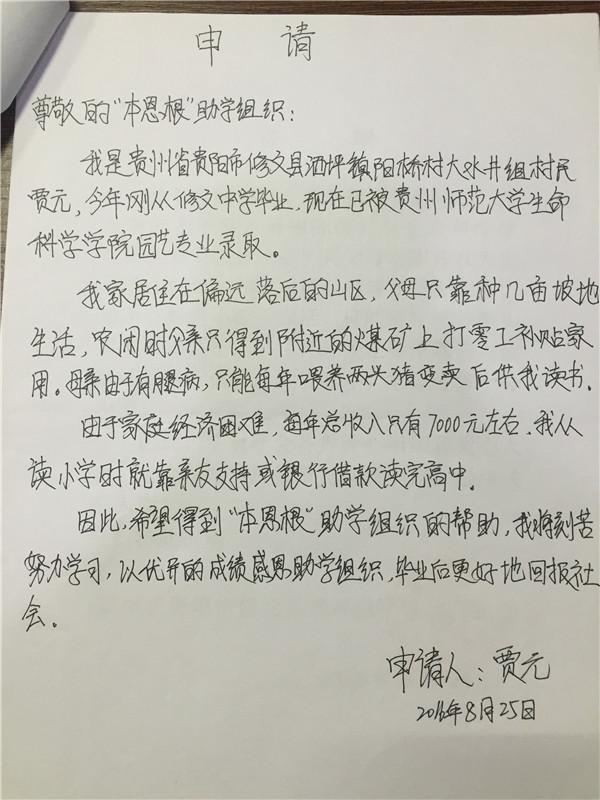 申 请
尊敬的“本恩根”助学组织：
我是贵州省贵阳市修文县洒坪镇阳桥村大水井组村民
贾元，今年刚从修文中学毕业，现在已被贵州师范大学生命
科学学院园艺专业录取。
我家居住在偏远落后的山区，父母只靠种几亩坡地
生活，农闲时父亲只得到附近的煤矿上打零工补贴家
用。母亲由于有腰病，只能每年喂养两头猪变卖后供我读书。
由于家庭经济困难，每年总收入只有7000元左右，我从
读小学时就靠亲友支持或银行借款读完高中。
因此，希望得到“本恩根”助学组织的帮助，我将刻苦
努力学习，以优异的成绩感恩助学组织，毕业后更好地回报社
会。
申请人：贾元
2016年8月25日